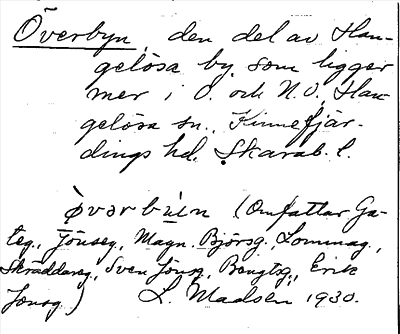 Överbyn, den del av Han-
gelösa by som ligger
mer i O. och N.O. Han-
gelösa sn., Kinnefjär-
dings hd. Skarab. l.
övərbùin (Omfattar Ga-
teg., Jönseg., Magn. Björsg., Lommag.,
Skräddareg., Sven Jönsg., Bengtsg., Erik
Jonsg.) L. Madsén 1930.